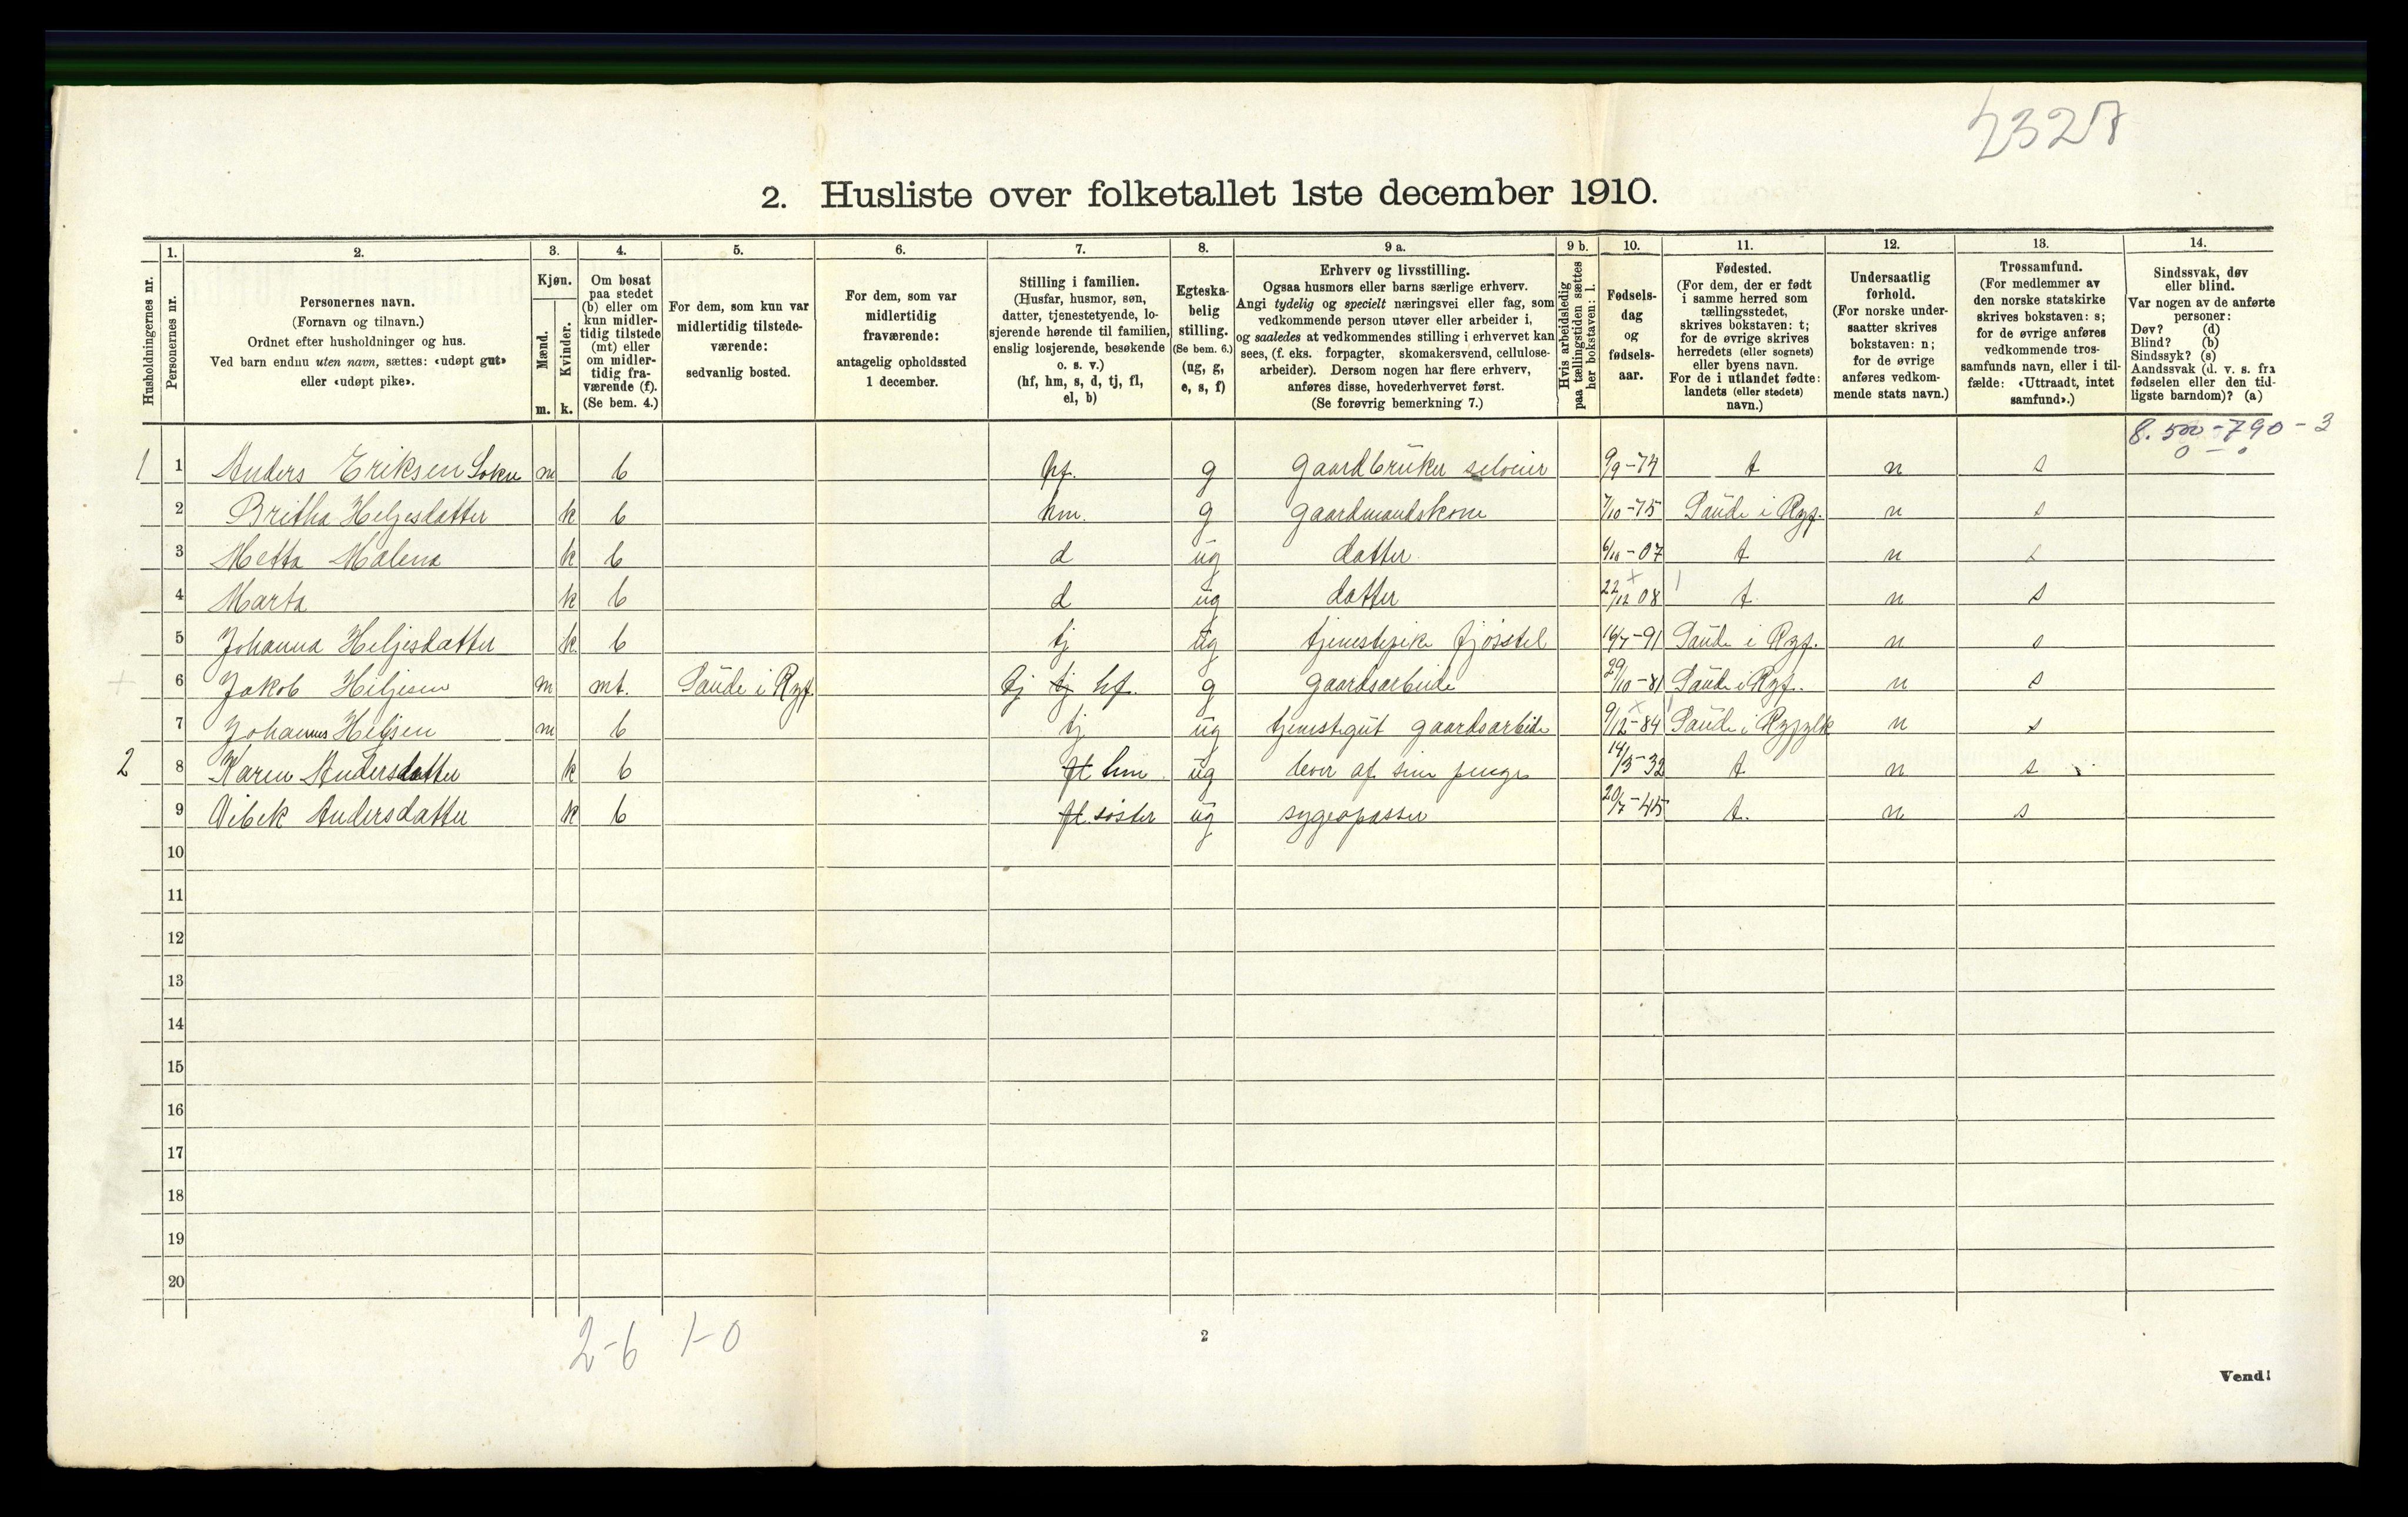 2327
2. Husliste over folketallet 1ste december 1910.
Husholdningernes nr.
1.
Personernes nr.
2.
Personernes navn.
(Fornavn og tilnavn.)
Ordnet efter husholdninger og hus.
Ved barn endnu uten navn, sættes: «udøpt gut»
eller «udøpt pike».
3.
Kjøn.
Mænd.
Kvinder.
m. k.
4.
Om bosat
paa stedet
(b) eller om
kun midler-
tidig tilstede
(mt) eller
om midler-
tidig fra-
værende (f).
(Se bem. 4.)
5.
For dem, som kun var
midlertidig tilstede-
værende:
sedvanlig bosted.
6.
For dem, som var
midlertidig
fraværende:
antagelig opholdssted
1 december.
7.
Stilling i familien.
(Husfar, husmor, søn,
datter, tjenestetyende, lo-
sjerende hørende til familien,
enslig losjerende, besøkende
o. s. v.)
(hf, hm, s, d, tj, fl,
el, b)
8.
Egteska-
belig
stilling.
(Se bem. 6.)
(ug, g,
e, s, f)
9 a.
Erhverv og livsstilling.
Ogsaa husmors eller barns særlige erhverv.
Angi tydelig og specielt næringsvei eller fag, som
vedkommende person utøver eller arbeider i,
og saaledes at vedkommendes stilling i erhvervet kan
sees, (f. eks. forpagter, skomakersvend, cellulose-
arbeider). Dersom nogen har flere erhverv,
anføres disse, hovederhvervet først.
(Se forøvrig bemerkning 7.)
9 b.
Hvis arbeidsledig
paa tællingstiden sættes
her bokstaven: l.
10.
Fødsels-
dag
og
fødsels-
aar.
11.
Fødested.
(For dem, der er født
i samme herred som
tællingsstedet,
skrives bokstaven: t;
for de øvrige skrives
herredets (eller sognets)
eller byens navn.
For de i utlandet fødte:
landets (eller stedets)
navn.)
12.
Undersaatlig
forhold.
(For norske under-
saatter skrives
bokstaven: n;
for de øvrige
anføres vedkom-
mende stats navn.)
13.
Trossamfund.
(For medlemmer av
den norske statskirke
skrives bokstaven: s;
for de øvrige anføres
vedkommende tros-
samfunds navn, eller i til-
fælde: «Uttraadt, intet
samfund».)
14.
Sindssvak, døv
eller blind.
Var nogen av de anførte
personer:
Døv? (d)
Blind? (b)
Sindssyk? (s)
Aandssvak (d. v. s. fra
fødselen eller den tid-
ligste barndom)? (a)
8. 500 - 790 - 3
0 - 0
1 1 Anders Eriksen m b hf. g gaardbruker selveier 9/9-74 t n s
2 Britha Heljesdatter k b hm. g gaardmandskone 7/10-75 Saude i Ryf. n s
3 Metta Malena k b d ug datter 6/10-07 t n s
4 Marta k b d ug datter 22/12 08 t. n s
5 Johanna Heljesdatter k b tj ug tjenestepike fjøsstel 16/7-91 Saude i Ryf. n s
6 Jakob Heljesen m mt. Saude i Ryf. tj tj hf. g gaardsarbeide 29/10-81 Saude i Ryf. n s
7 Johannes Heljsen m b tj ug tjenestegut gaardsarbeide 9/12-84 Saude i Ryfylk n s
2 8 Karen Andersdatter k b ft hm ug lever af sine penge 14/3-32 t n s
9 Vibek Andersdatter k b ft søster ug sygepasser 20/7-45 t. n s
10
11
12
13
14
15
16
17
18
19
20
2-6 1-0
2
Vend!